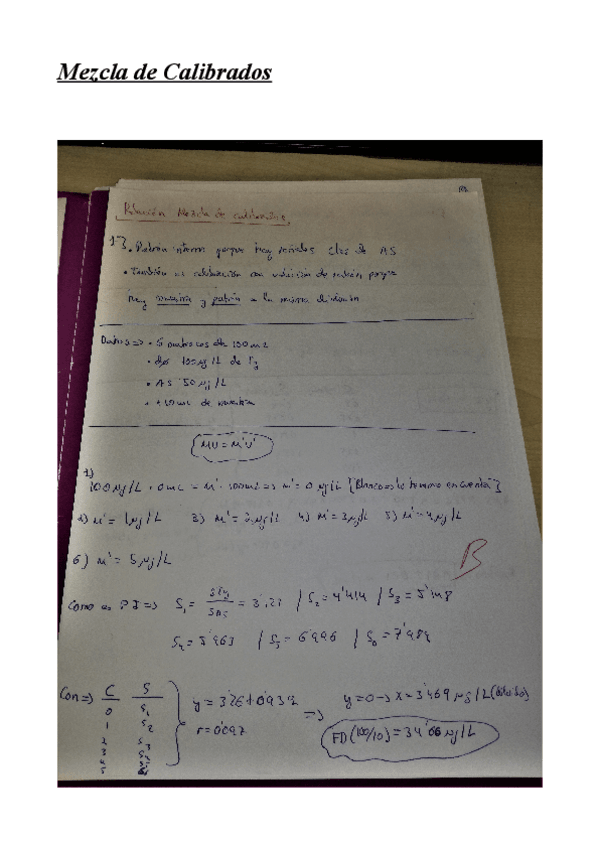 Mezcla de Calibrados
Relación Mezcla de calibrados
13. Patrón interno porque hay señales de AS
• También es calibración con adición de patrón porque
hay muestra y patrón a la misma disolución
Datos => • 6 matraces de 100 mL
• 100 µg/L de
• AS 50 µg/L
• +10 mL de muestra
MV = M'V'
1)
100 µg/L · 0 mL = M' · 100 mL => M' = 0 µg/L
2) M' = 1 µg/L 3) M' = 2 µg/L 4) M' = 3 µg/L 5) M' = 4 µg/L
6) M' = 5 µg/L
B
Como es P.I => S₁ = = 3'27 / S₂ = 4'414 / S₃ = 5'148
S₄ = 5'963 / S₅ = 6'996 / S₆ = 7'989
Con => C S
0 S₁
1 S₂
2 S₃
3 S₄
4
5
y = 3'26 + 0'939x
y = 0 -> x = 3'469 µg/L
=>
FD (100/10) = 34'66 µg/L